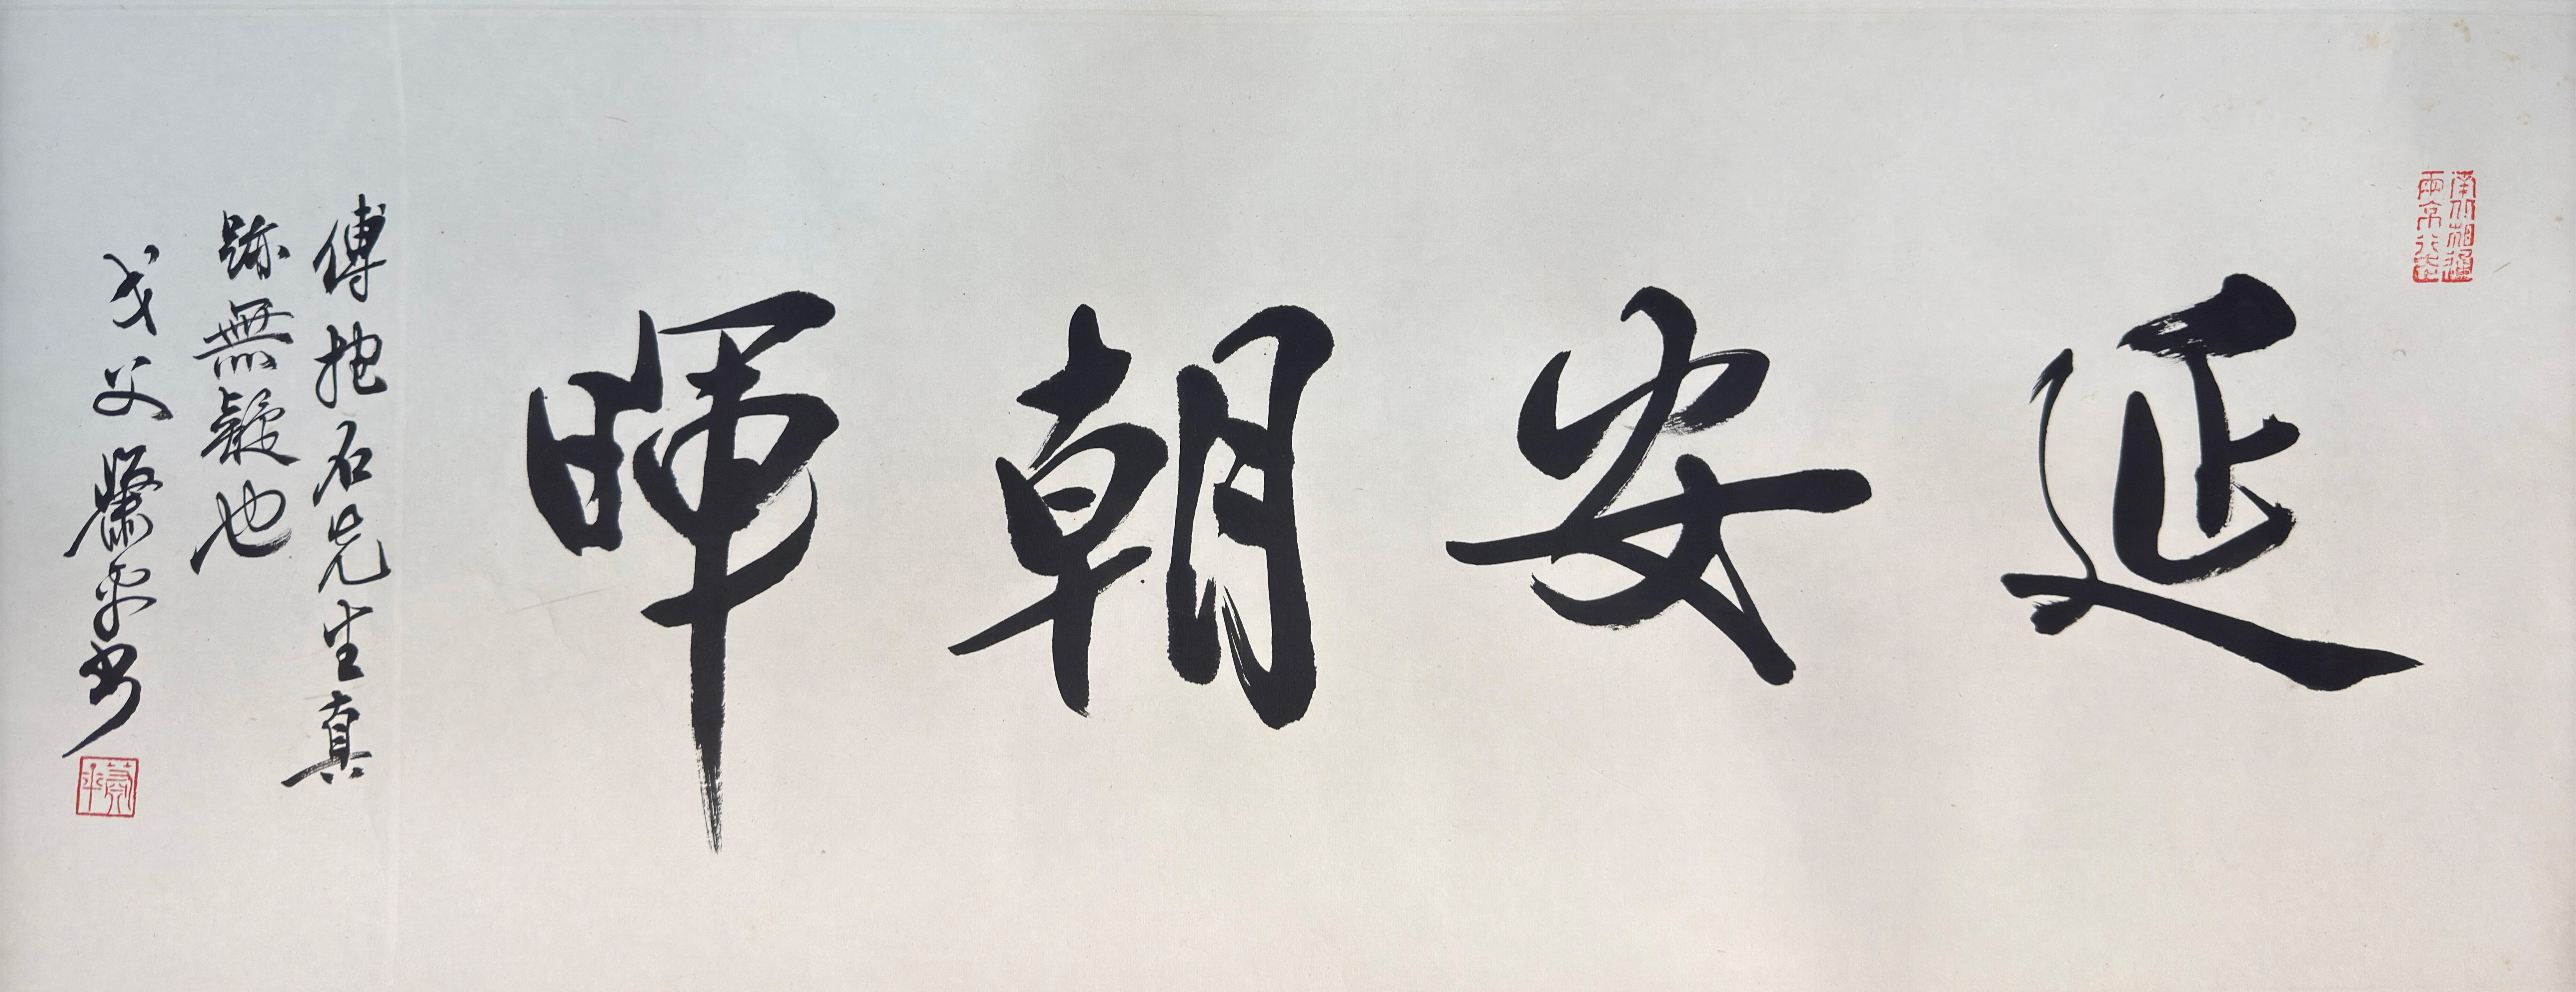 延安朝暉
傅抱石先生真
跡無疑也
戈父蕭平書
蕭平